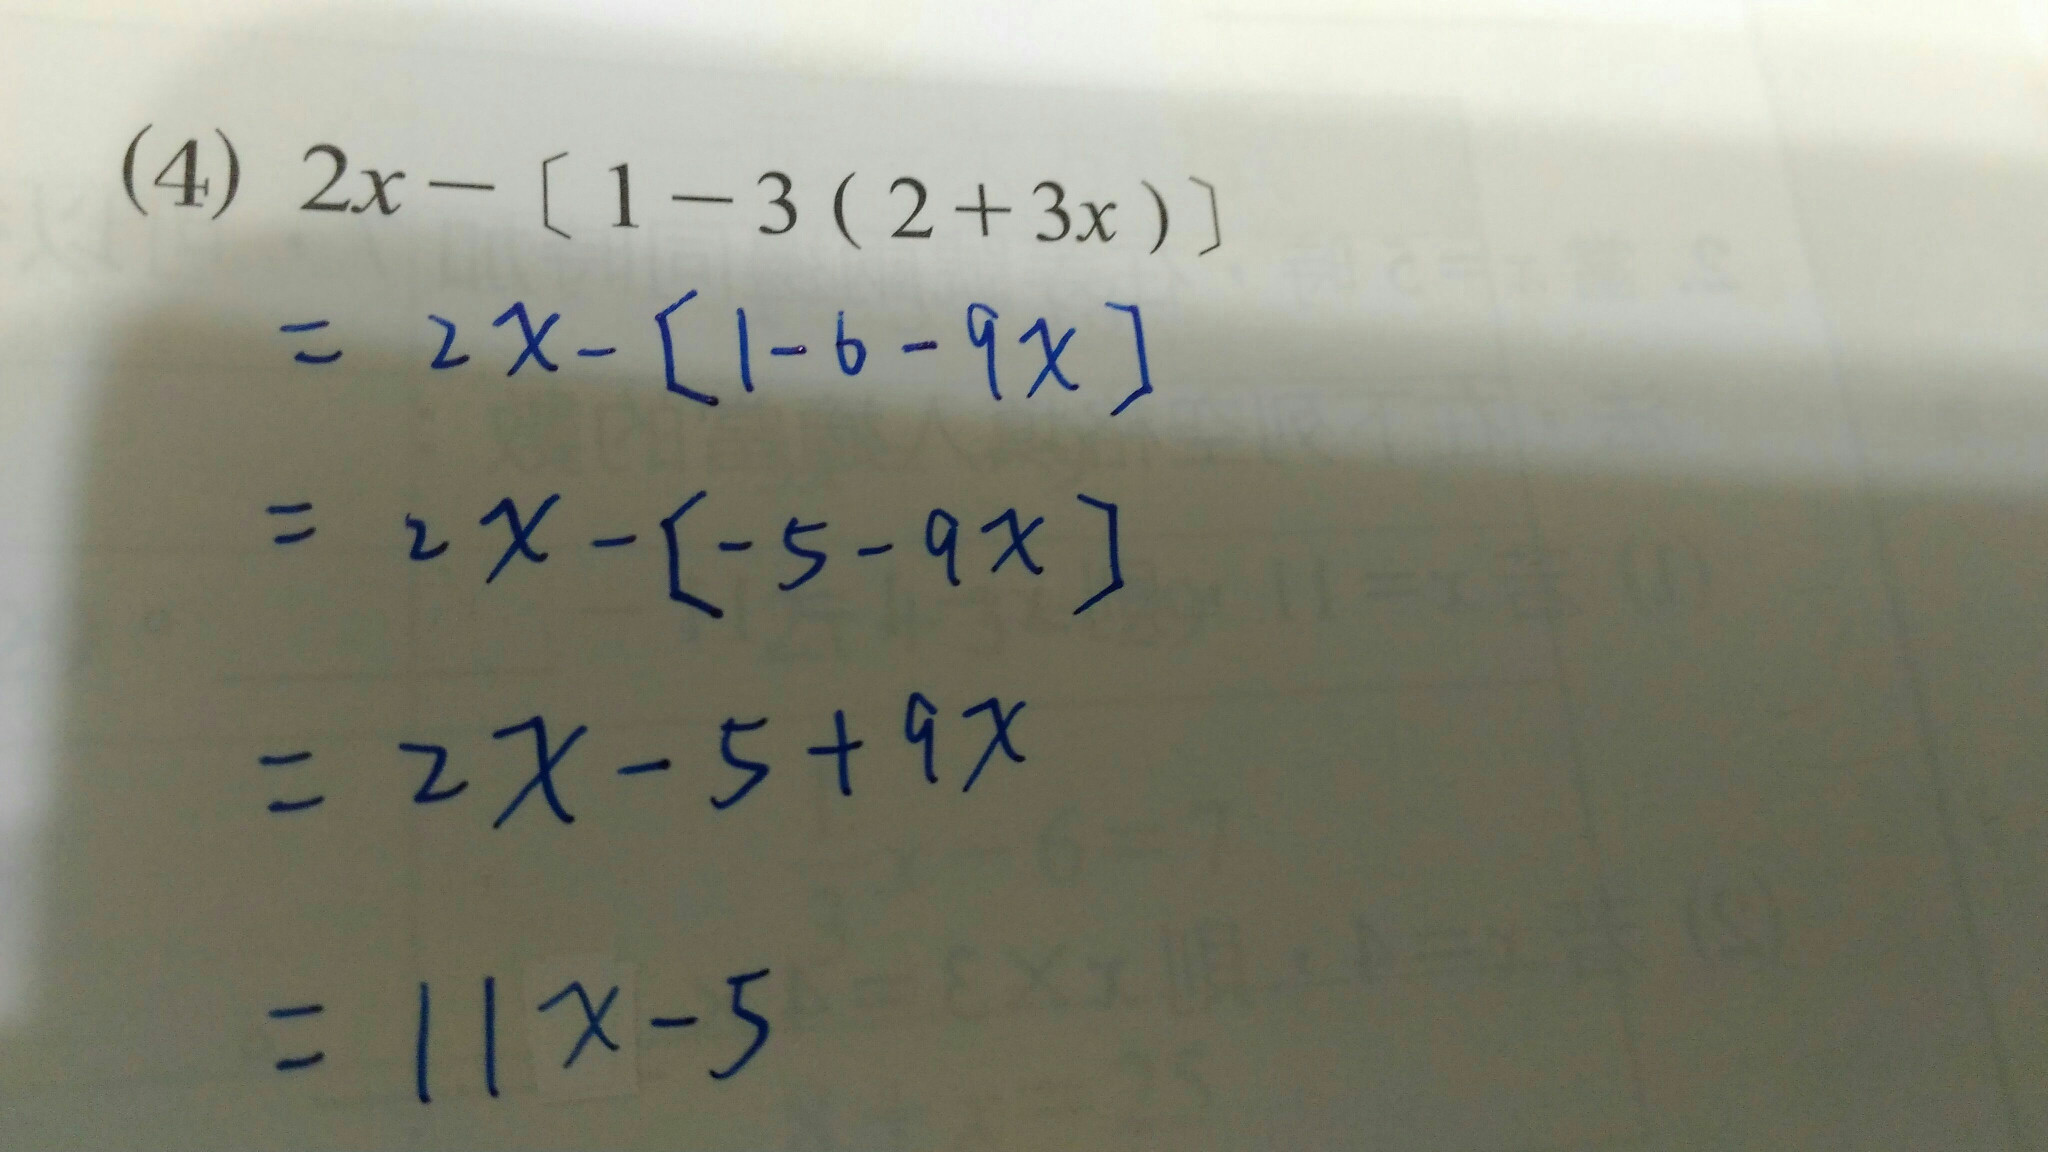 (4) 2x－〔1－3(2＋3x)〕
= 2x-[1-6-9x]
= 2x-[-5-9x]
= 2x-5+9x
= 11x-5